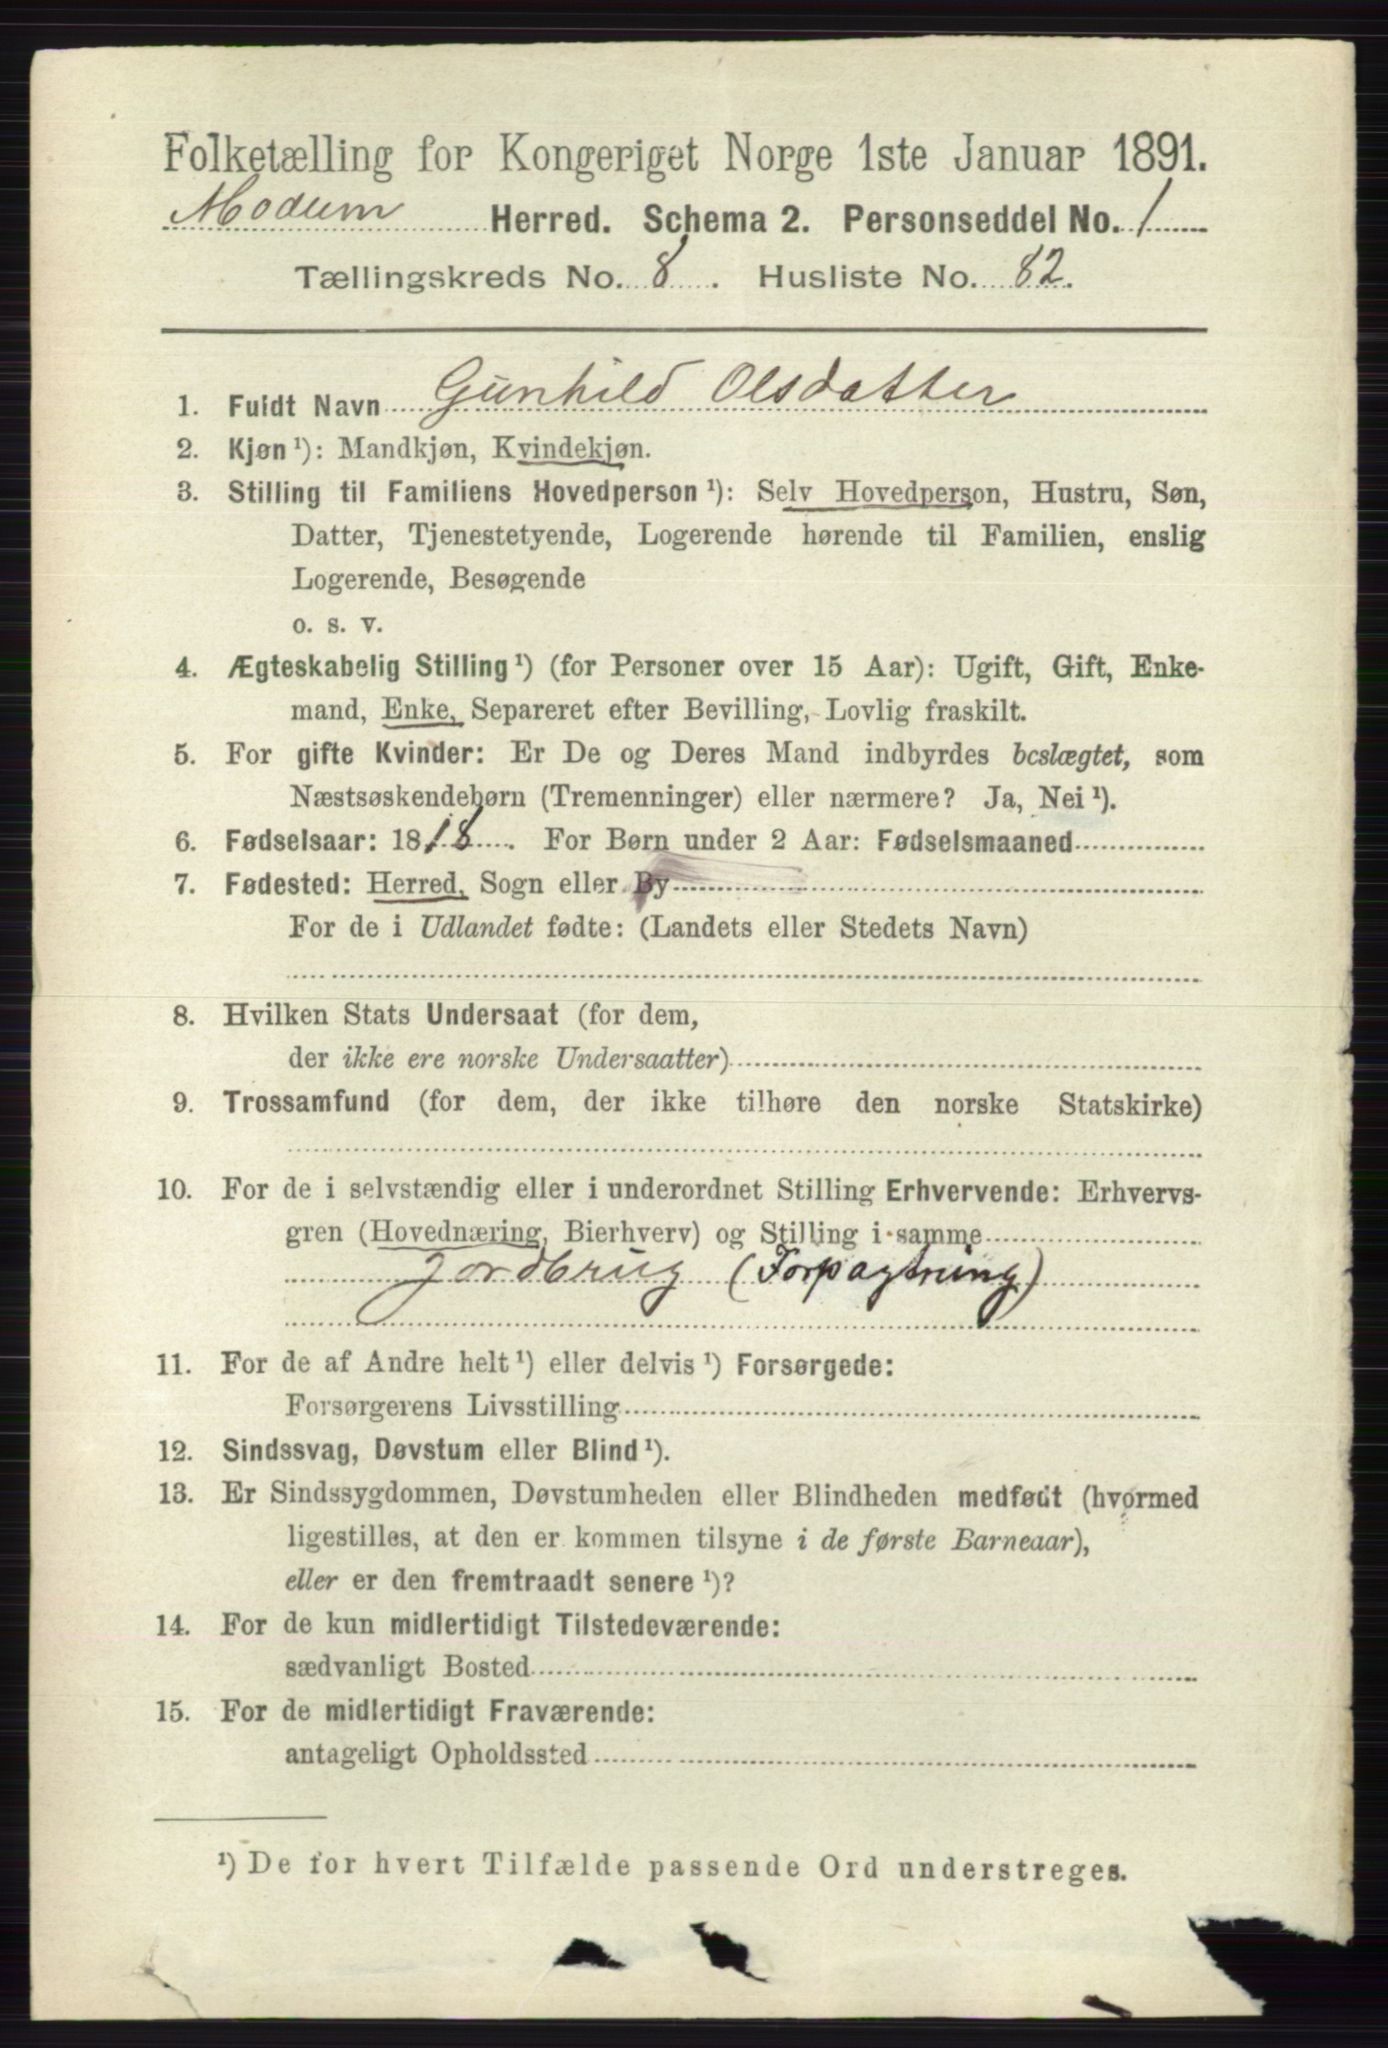 Folketælling for Kongeriget Norge 1ste Januar 1891.
Modum Herred. Schema 2. Personseddel No. 1
Tællingskreds No. 8. Husliste No. 82.
1. Fuldt Navn Gunhild Olsdatter
2. Kjøn ¹): Mandkjøn, Kvindekjøn.
3. Stilling til Familiens Hovedperson ¹): Selv Hovedperson, Hustru, Søn,
Datter, Tjenestetyende, Logerende hørende til Familien, enslig
Logerende, Besøgende
o. s. v.
4. Ægteskabelig Stilling ¹) (for Personer over 15 Aar): Ugift, Gift, Enke-
mand, Enke, Separeret efter Bevilling, Lovlig fraskilt.
5. For gifte Kvinder: Er De og Deres Mand indbyrdes beslægtet, som
Næstsøskendebørn (Tremenninger) eller nærmere? Ja, Nei ¹).
6. Fødselsaar: 1818. For Børn under 2 Aar: Fødselsmaaned
7. Fødested: Herred, Sogn eller By
For de i Udlandet fødte: (Landets eller Stedets Navn)
8. Hvilken Stats Undersaat (for dem,
der ikke ere norske Undersaatter)
9. Trossamfund (for dem, der ikke tilhøre den norske Statskirke)
10. For de i selvstændig eller i underordnet Stilling Erhvervende: Erhvervs-
gren (Hovednæring, Bierhverv) og Stilling i samme
Jordbrug (Forpagtning)
11. For de af Andre helt ¹) eller delvis ¹) Forsørgede:
Forsørgerens Livsstilling
12. Sindssvag, Døvstum eller Blind ¹).
13. Er Sindssygdommen, Døvstumheden eller Blindheden medfødt (hvormed
ligestilles, at den er kommen tilsyne i de første Barneaar),
eller er den fremtraadt senere ¹)?
14. For de kun midlertidigt Tilstedeværende:
sædvanligt Bosted
15. For de midlertidigt Fraværende:
antageligt Opholdssted
¹) De for hvert Tilfælde passende Ord understreges.